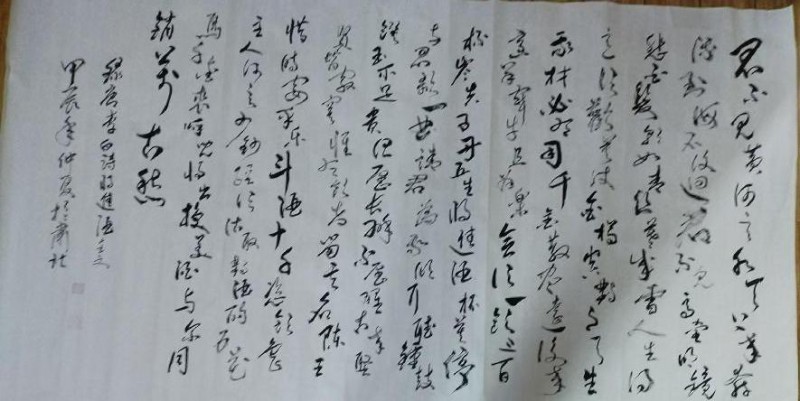 君不见黄河之水天上来奔
流到海不复回君不见高堂明镜
悲白发朝如青丝暮成雪人生得
意须欢莫使金樽空对月天生
我材必有用千金散尽还复来
烹羊宰牛且为乐会须一饮三百
杯岑夫子丹丘生将进酒杯莫停
与君歌一曲请君为我倾耳听钟鼓
馔玉不足贵但愿长醉不愿醒古来圣
贤皆寂寞惟有饮者留其名陈王
昔时宴平乐斗酒十千恣欢谑
主人何为言少钱径须沽取对君酌五花
马千金裘呼儿将出换美酒与尔同
销万古愁
录唐李白诗将进酒
甲辰年仲夏于